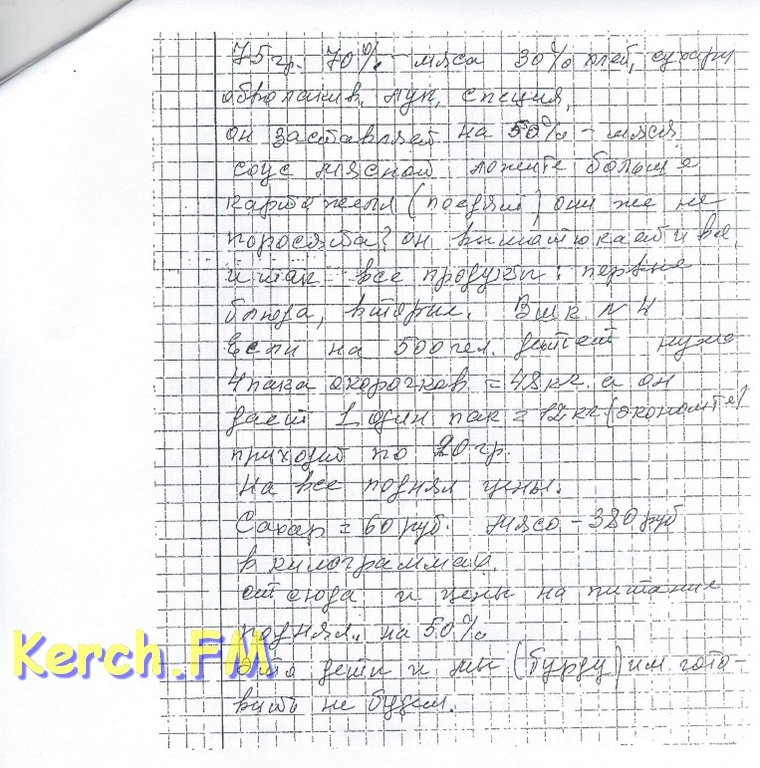 75 гр. 70% - мяса 30% хлеб, сухари
обвол. лук, специя,
он заставляет на 50% - мяса
соус мясной ложите больше
картошки (поедят) они же не
поросята? он и все
и так все продукты: первые
блюда, вторые. В шк N 4
Если на 500 чел. детей нужно
4 пака окорочков = 48 кг. а он
дает 1 один пак = 12 кг. (экономте)
приходит по 20 гр.
На все поднял цены.
Сахар = 60 руб. Мясо - 380 руб
в килограммах.
отсюда и цены на питание
поднял. на 50%
Это дети и мы (бурду) им гото-
вить не будем.
Kerch.FM